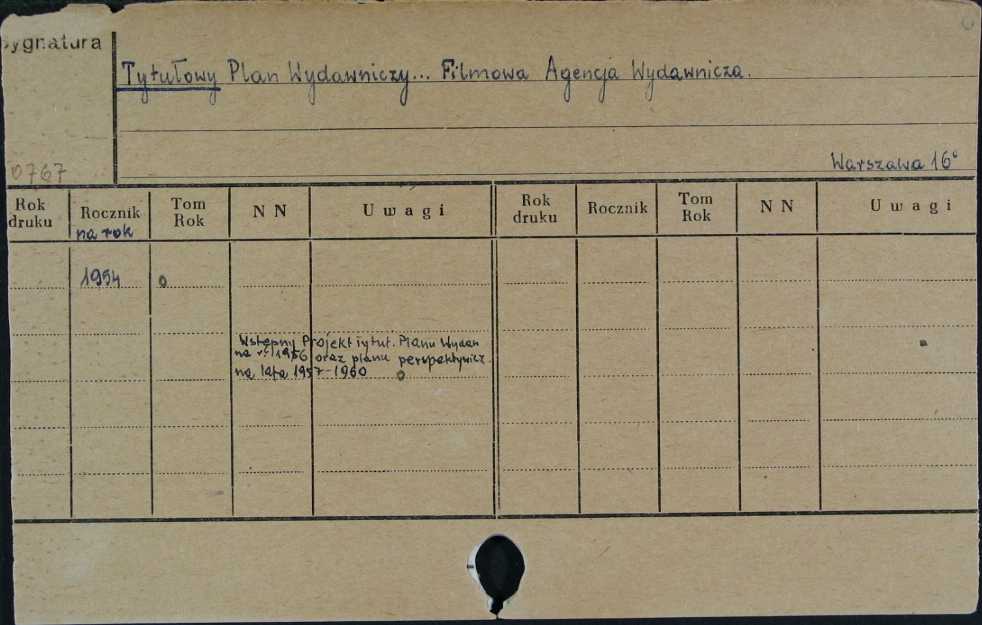 Sygnatura
Tytułowy Plan Wydawniczy... Filmowa Agencja Wydawnicza.
0767
Warszawa 16°
Rok druku Rocznik na rok Tom Rok NN Uwagi Rok druku Rocznik Tom Rok NN Uwagi
1954 o
Wstępny Projekt tytuł. Planu Wydan
na r. 1956 oraz planu perspektywicz.
na lata 1957-1960 o